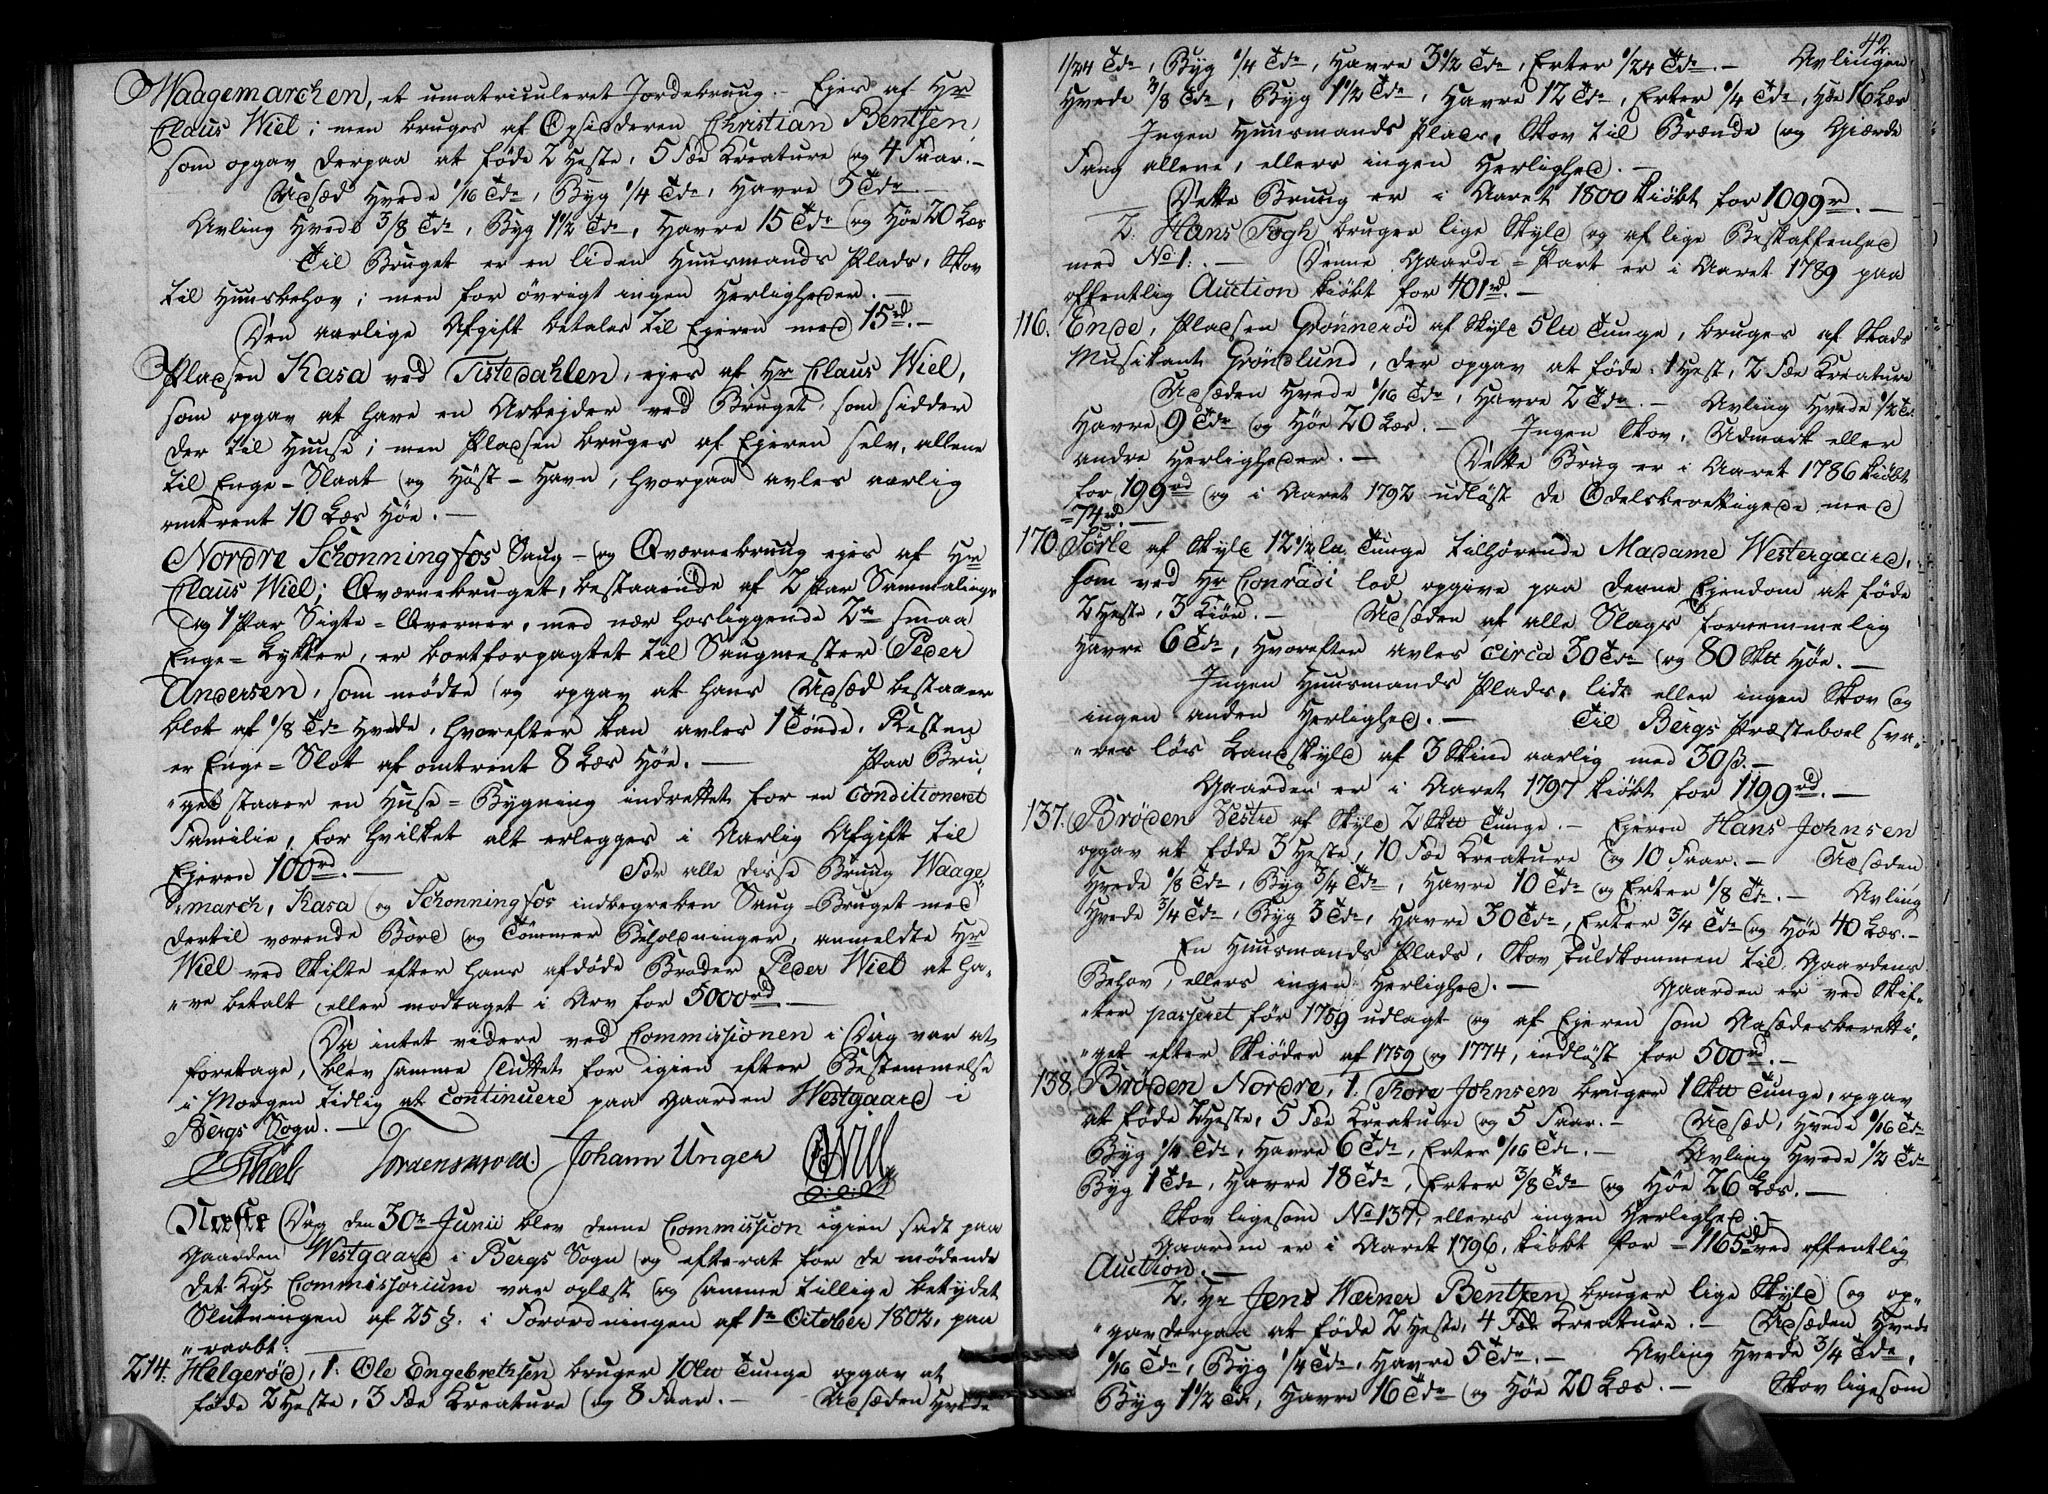 Waagemarchen, et umatriculeret Jordebruug. - Ejes af Hr
Claus Wiel; men bruges af Opsidderen Christian Bentsen,
som opgav derpaa at føde 2 Heste, 5 Fæe Kreature og 4 Faar. -
Udsæd Hvede 1/16 Tde, Byg 1/4 Tde, Havre 5 Tde -
Avling Hvede 3/8 Tde, Byg 1 1/2 Tde, Havre 15 Tde og Høe 20 Læs
Til Bruget er en liden Huusmands Plads, Skov
til Huusbehov; men for øvrigt ingen Herligheder. -
Den aarlige Afgift betales til Ejeren med 15 rd. -
Pladsen Kasa ved Tistedahlen, ejes af Hr Claus Wiel,
som opgav at have en Arbejder ved Bruget, som sidder
der til Huuse; men Pladsen bruges af Ejeren selv, allene
til Enge-Slaat og Høst-Havn, hvorpaa avles aarlig
omtrent 10 Læs Høe. -
Nordre Schonningfos Saug- og Qværnebruug ejes af Hr
Claus Wiel; Qværnebruget, bestaaende af 2 Par Sammalings
og 1 Par Sigte-Qverner, med nær hosliggende 2de smaa
Enge-Løkker, er bortforpagtet til Saugmester Peder
Andersen, som mødte og opgav at hans Udsæd bestaaer
blot af 1/8 Tde Hvede, hvorefter kan avles 1 Tønde, Resten
er Enge-Slot af omtrent 8 Læs Høe. - Paa Bru-
"get staaer en Huse-Bygning indrettet for en conditioneret
Familie, for hvilket alt erlegges i Aarlig Afgift til
Ejeren 100 rd. - For alle disse Bruug Waage-
"march, Kasa og Schonningfos indbegreben Saug-Bruget med
dertil værende Bord og Tømmer Beholdninger, anmeldte Hr
Wiel ved Skifte efter hans afdøde Broder Peder Wiel at ha-
"ve betalt eller modtaget i Arv for 5000 rd. -
Da intet videre ved Commissionen i Dag var at
foretage, blev samme sluttet for igien efter Bestemmelse
i Morgen tidlig at continuere paa Gaarden Westgaard i
Bergs Sogn. -
Johann Unger
Næste Dag den 30te Junii blev denne Commission igien sadt paa
Gaarden Westgaard i Bergs Sogn og efterat for de mødende
det Kgs Commissorium var oplæst og samme tillige betydet
Slutningen af 25 §. i Forordningen af 1te October 1802, paa
"raabt:
214. Helgerød, 1. Ole Engebrethsen bruger 10 lu Tunge opgav at
føde 2 Heste, 3 Fæe Kreature og 8 Faar. - Udsæden Hvede
42.
1/24 Tde, Byg 1/4 Tde, Havre 3 1/2 Tde, Erter 1/24 Tde. - Avlingen
Hvede 3/8 Tde, Byg 1 1/2 Tde, Havre 12 Tde, Erter 1/4 Tde, Høe 16 Læs
Ingen Huusmands Plads, Skov til Brænde og Gjærde
Fang allene, ellers ingen Herlighed. -
Dette Bruug er i Aaret 1800 kiøbt for 1099 rd. -
2. Hans Fogh bruger lige Skyld og af lige Beskaffenhed
med No 1. - Denne Gaarde-Part er i Aaret 1789 paa
offentlig Auction kiøbt for 401 rd. -
116. Ende, Pladsen Grønnerød af Skyld 5 lu Tunge, bruges af Stads
Musikant Grøndlund, der opgav at føde 1 Hest, 2 Fæe Kreature
Udsæden Hvede 1/16 Tde, Havre 2 Tde. - Avling Hvede 1/2 Td
Havre 9 Tde og Høe 20 Læs. - Ingen Skov, Udmark eller
andre Herligheder. - Dette Brug er i Aaret 1786 kiøbt
for 199 rd og i Aaret 1792 udløst de Odelsberettigede med
74 rd. -
170. Sørle af Skyld 12 1/2 lu Tunge tilhørende Madame Westergaard,
som ved Hr Conradi lod opgive paa denne Ejendom at føde
2 Heste, 3 Kiør. - Udsæden af alle Slags fornemmelig
Havre 6 Tde, hvorefter avles circa 30 Tde og 80 Sktt Høe. -
Ingen Huusmands Plads, lidt eller ingen Skov og
ingen anden Herlighed. - Til Bergs Præsteboel sva-
"res løs Landskyld af 3 Skind aarlig med 30 s. -
Gaarden er i Aaret 1797 kiøbt for 1199 rd. -
137. Brøden Vestre af Skyld 2 Sktt Tunge. - Ejeren Hans Johnsen
opgav at føde 3 Heste, 10 Fæe Kreature og 10 Faar. - Udsæden
Hvede 1/8 Tde, Byg 3/4 Tde, Havre 10 Tde og Erter 1/8 Td. - Avling
Hvede 3/4 Tde, Byg 3 Tde, Havre 30 Tde, Erter 3/4 Tde og Høe 40 Læs. -
En Huusmands Plads, Skov fuldkommen til Gaardens
Behov, ellers ingen Herlighed. - Gaarden er ved Skif-
"ter passeret før 1759 udlagt og af Ejeren som Aasædesberetti-
"get efter Skiøder af 1759 og 1774, indløst for 500 rd. -
138. Brøden Nordre, 1. Thore Johnsen bruger 1 Sktt Tunge, opgav
at føde 2 Heste, 5 Fæe Kreature og 5 Faar. - Udsæd, Hvede 1/16 Td
Byg 1/4 Td, Havre 6 Tde, Erter 1/16 Td. - Avling Hvede 1/2 Tde
Byg 1 Tde, Havre 18 Tde, Erter 3/8 Tde og Høe 26 Læs. -
Skov ligesom No 137, ellers ingen Herlighed. -
Gaarden er i Aaret 1796, kiøbt for 1165 rd ved offentlig
Auction. -
2. Hr Jens Werner Bentzen bruger lige Skyld og op-
"gav derpaa at føde 2 Heste, 4 Fæe Kreature. - Udsæden Hvede
1/16 Tde, Byg 1/4 Tde, Havre 5 Tde. - Avling Hvede 3/4 Tde,
Byg 1 1/2 Td, Havre 16 Tde og Høe 20 Læs. - Skov ligesom